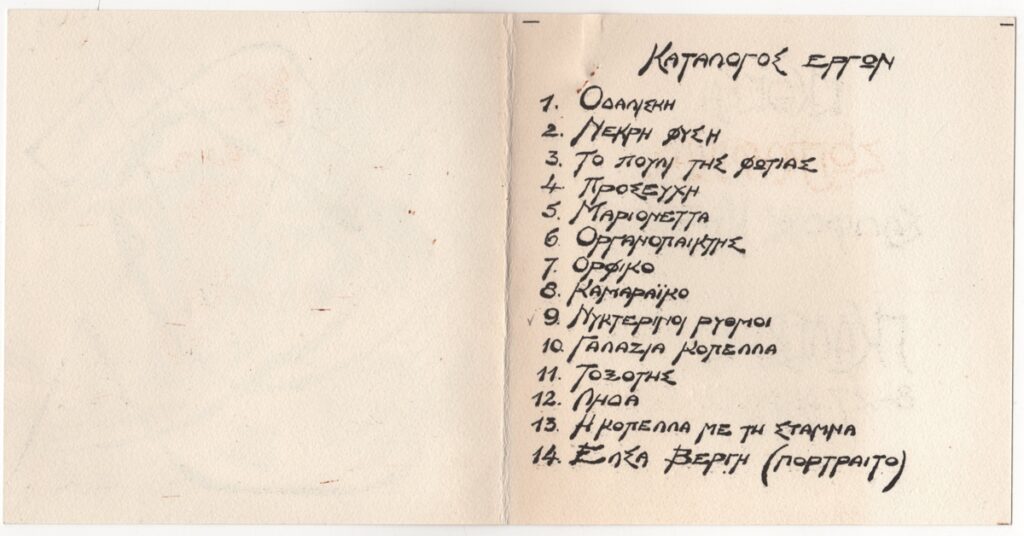 ΚΑΤΑΛΟΓΟΣ ΕΡΓΩΝ
1. ΟΔΑΛΙΣΚΗ
2. ΝΕΚΡΗ ΦΥΣΗ
3. ΤΟ ΠΟΥΛΙ ΤΗΣ ΦΩΤΙΑΣ
4. ΠΡΟΣΕΥΧΗ
5. ΜΑΡΙΟΝΕΤΤΑ
6. ΟΡΓΑΝΟΠΑΙΚΤΗΣ
7. ΟΡΦΙΚΟ
8. ΚΑΜΑΡΑΪΚΟ
9. ΝΥΚΤΕΡΙΝΟΙ ΡΥΘΜΟΙ
10. ΓΑΛΑΖΙΑ ΚΟΠΕΛΛΑ
11. ΤΟΞΟΤΗΣ
12. ΛΗΔΑ
13. Η ΚΟΠΕΛΛΑ ΜΕ ΤΗ ΣΤΑΜΝΑ
14. ΕΛΣΑ ΒΕΡΓΗ (ΠΟΡΤΡΑΙΤΟ)